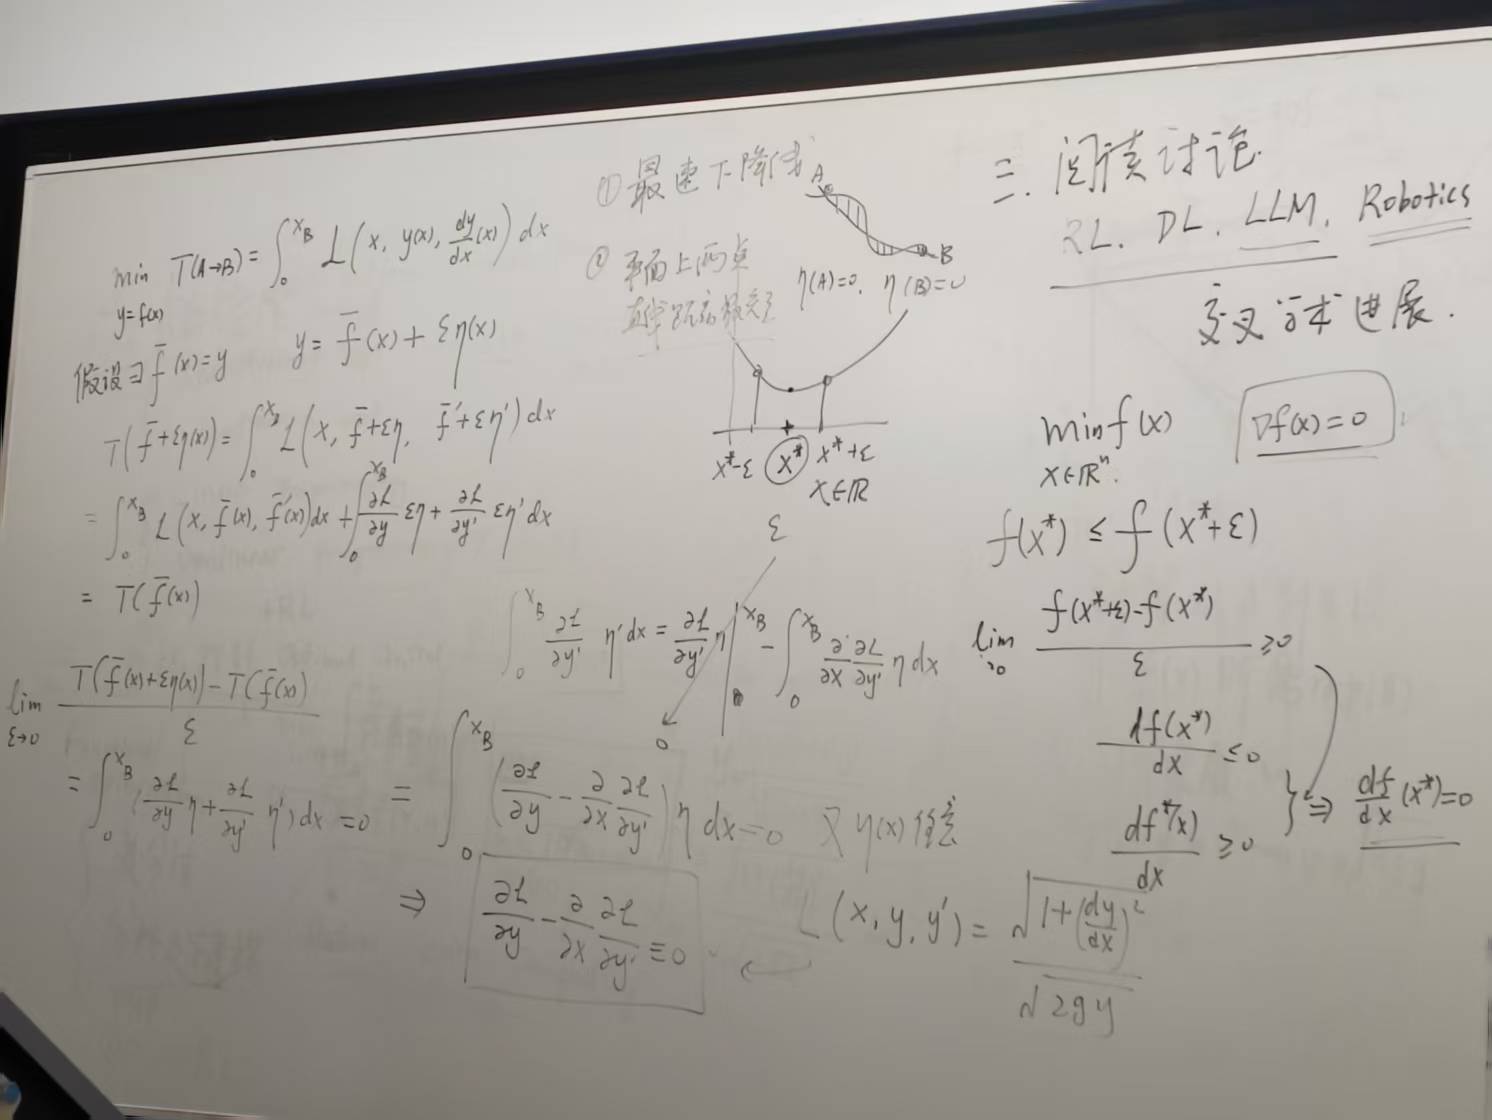 min T(A→B) = ∫₀^{x_B} L(x, y(x), dy/dx(x)) dx
y=f(x)
假设∃ f̄(x)=y   y = f̄(x) + εη(x)
T(f̄+εη(x)) = ∫₀^{x_B} L(x, f̄+εη, f̄'+εη') dx
= ∫₀^{x_B} L(x, f̄(x), f̄'(x)) dx + ∫₀^{x_B} ∂L/∂y εη + ∂L/∂y' εη' dx
= T(f̄(x))
lim_{ε→0} (T(f̄(x)+εη(x)) - T(f̄(x)))/ε
= ∫₀^{x_B} (∂L/∂y η + ∂L/∂y' η') dx = 0
① 最速下降
A
B
② 平面上两点
η(A)=0, η(B)=0
x*-ε x* x*+ε
x∈ℝ
ε
∫₀^{x_B} ∂L/∂y' η' dx = ∂L/∂y' η |^{x_B} - ∫₀^{x_B} ∂/∂x ∂L/∂y' η dx
0
= ∫₀^{x_B} (∂L/∂y - ∂/∂x ∂L/∂y') η dx = 0 又 η(x) 任意
⇒ ∂L/∂y - ∂/∂x ∂L/∂y' ≡ 0
L(x, y, y') = √(1+(dy/dx)²) / √(2gy)
三. 阅读讨论.
RL. DL. LLM. Robotics
交叉 进展.
min f(x)   ∇f(x)=0
x∈ℝⁿ.
f(x*) ≤ f(x*+ε)
lim_{→0} (f(x*+ε)-f(x*))/ε ≥0
df(x*)/dx ≤0
df*(x)/dx ≥0
} ⇒ df/dx (x*)=0